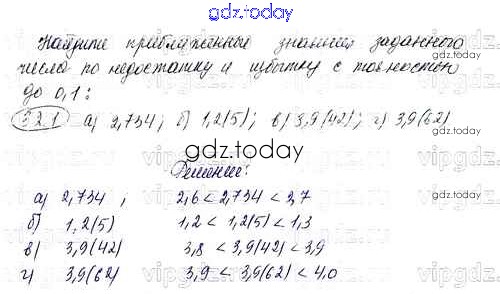 gdz.today
Найдите приближенные значения заданного
числа по недостатку и избытку с точностью
до 0,1:
32.1 а) 2,734; б) 1,2(5); в) 3,9(42); г) 3,9(62)
gdz.today
Решение:
а) 2,734; 2,6 < 2,734 < 2,7
б) 1,2(5) 1,2 < 1,2(5) < 1,3
в) 3,9(42) 3,8 < 3,9(42) < 3,9
г) 3,9(62) 3,9 < 3,9(62) < 4,0
gdz.today